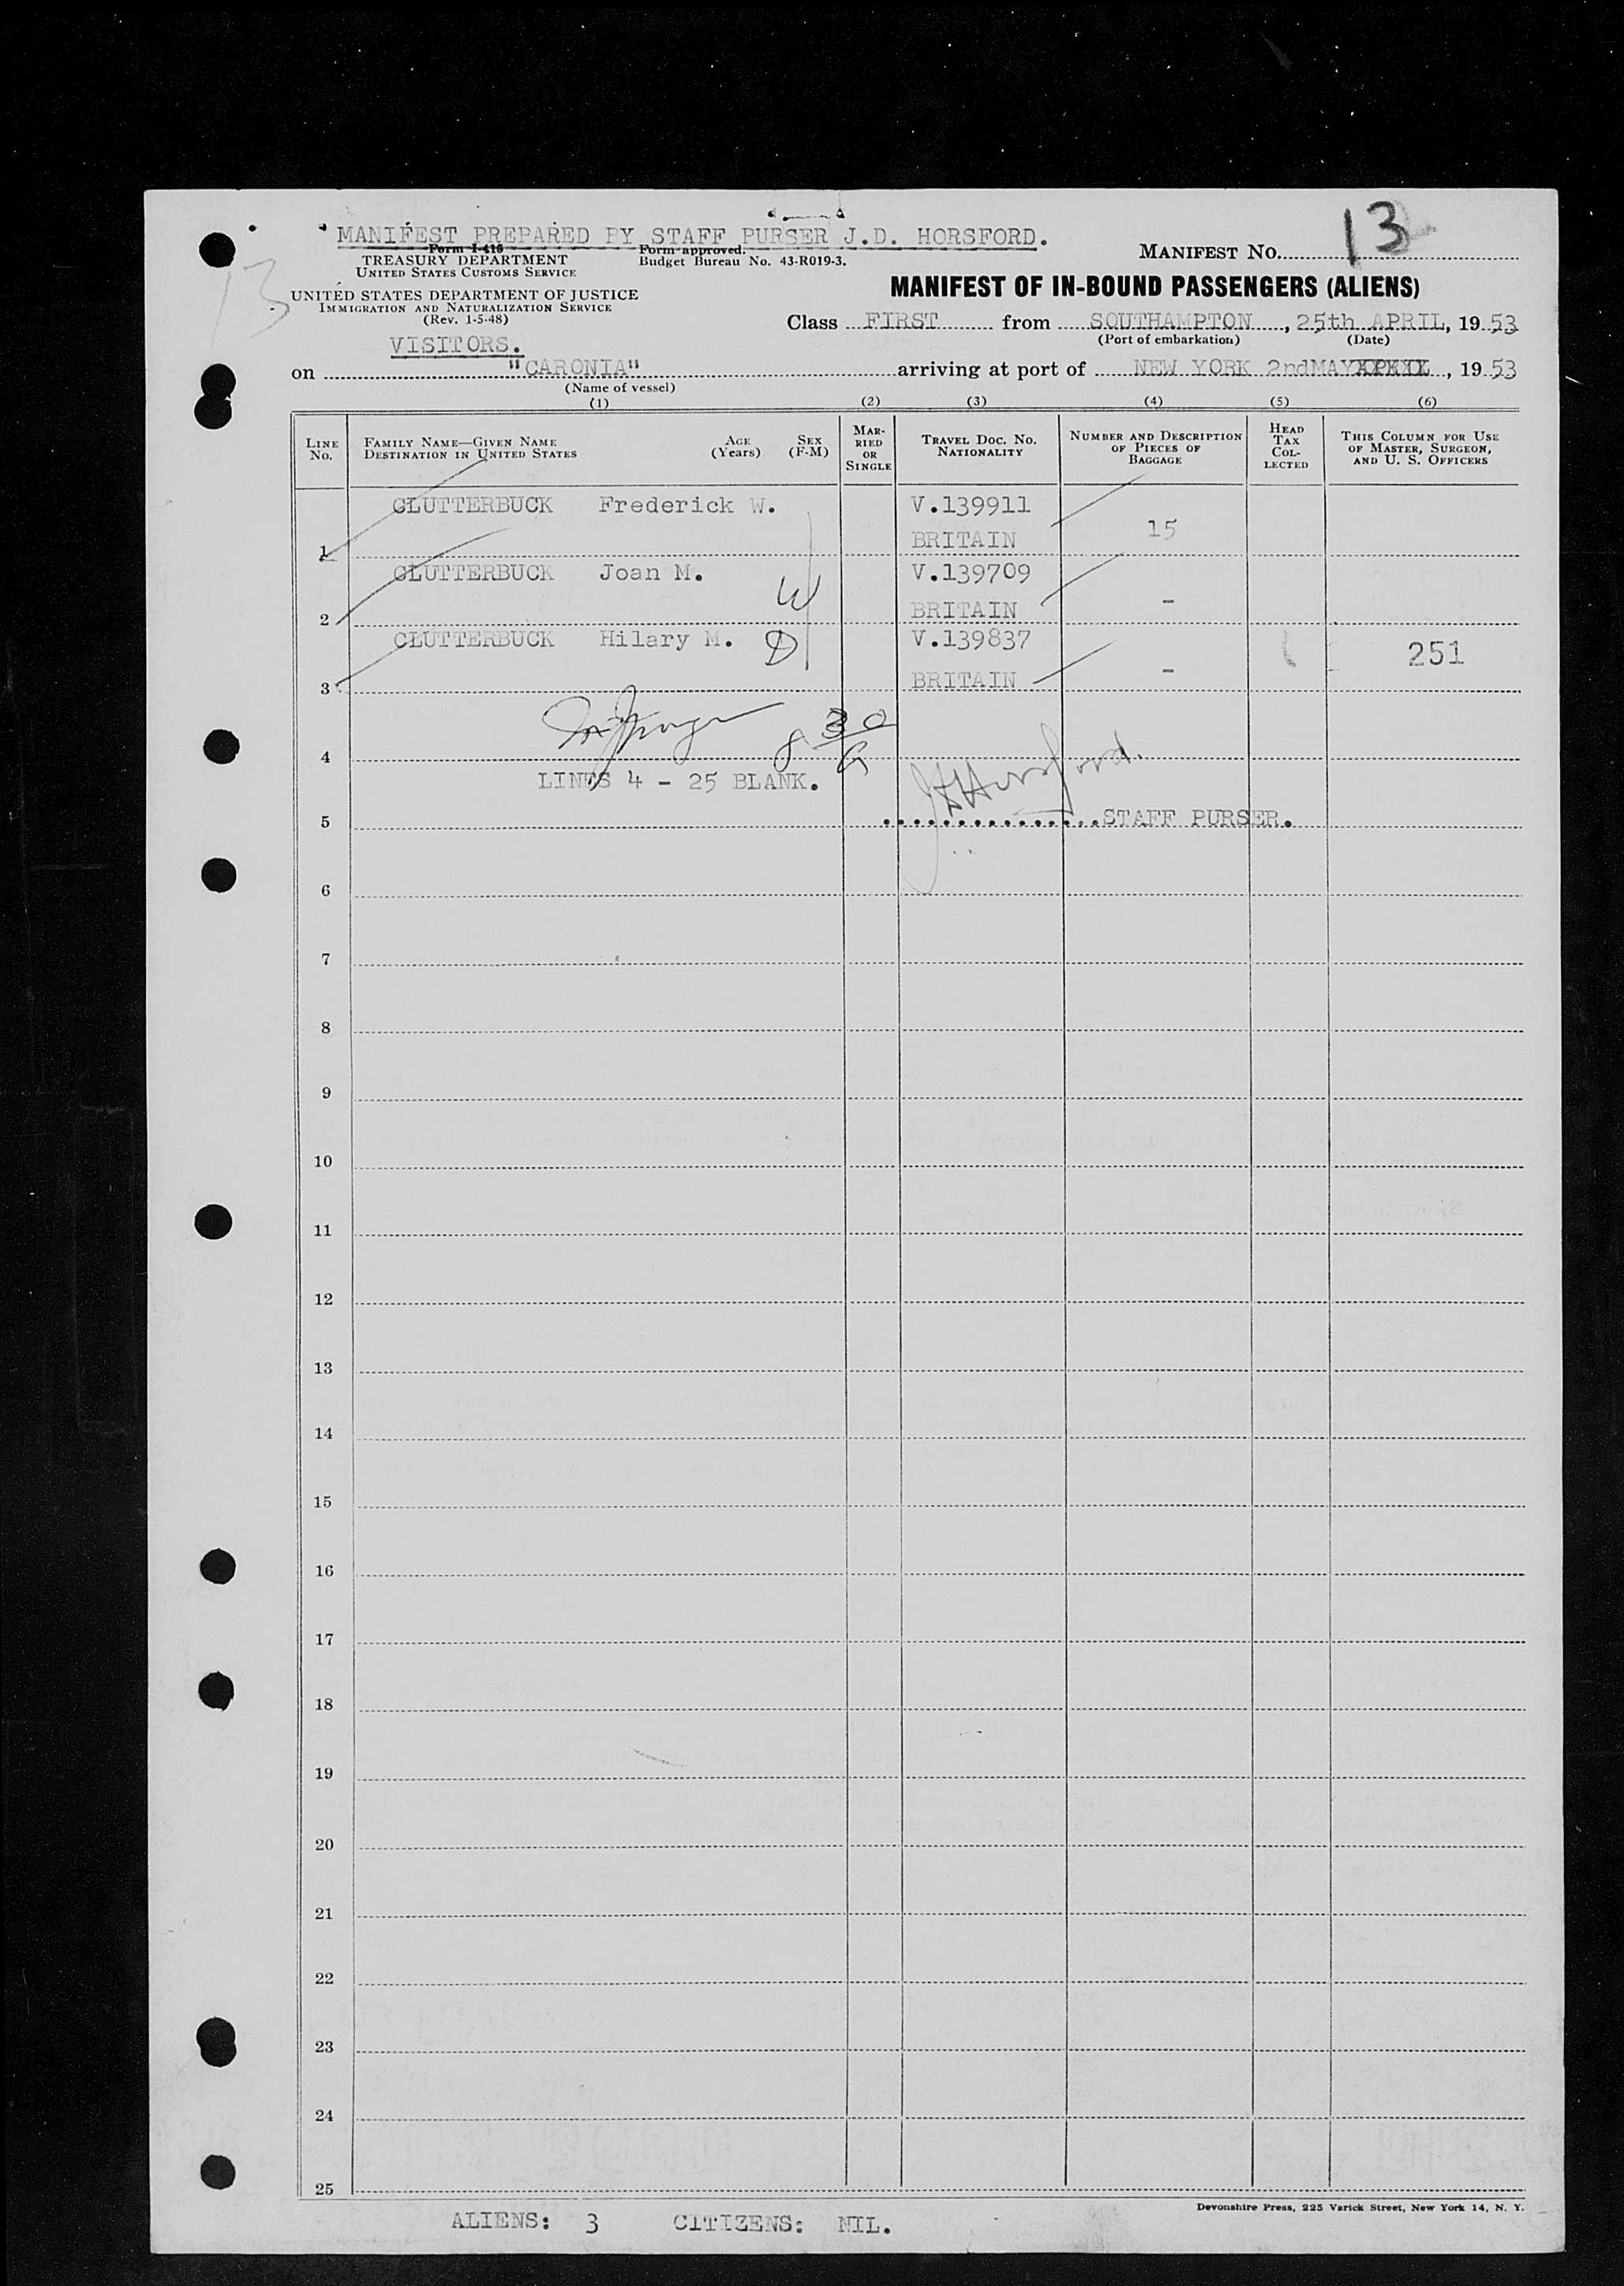 MANIFEST PREPARED BY STAFF PURSER J.D. HORSFORD.
Form I-416
Form approved.
TREASURY DEPARTMENT
Budget Bureau No. 43-R019-3.
UNITED STATES CUSTOMS SERVICE
MANIFEST NO. 13
13
UNITED STATES DEPARTMENT OF JUSTICE
IMMIGRATION AND NATURALIZATION SERVICE
(Rev. 1-5-48)
MANIFEST OF IN-BOUND PASSENGERS (ALIENS)
Class FIRST from SOUTHAMPTON, 25th APRIL, 19 53
(Port of embarkation) (Date)
VISITORS.
on "CARONIA" arriving at port of NEW YORK 2ndMAY, 19 53
(Name of vessel)
(1) (2) (3) (4) (5) (6)
LINE NO. FAMILY NAME—GIVEN NAME DESTINATION IN UNITED STATES AGE (Years) SEX (F-M) MARRIED OR SINGLE TRAVEL DOC. NO. NATIONALITY NUMBER AND DESCRIPTION OF PIECES OF BAGGAGE HEAD TAX COLLECTED THIS COLUMN FOR USE OF MASTER, SURGEON, AND U. S. OFFICERS
CLUTTERBUCK Frederick W. V.139911
1 BRITAIN 15
CLUTTERBUCK Joan M. V.139709
2 W BRITAIN -
CLUTTERBUCK Hilary M. D V.139837 251
3 BRITAIN -
8 30
4 G
LINES 4 - 25 BLANK.
J D Horsford.
5 ...............STAFF PURSER.
6
7
8
9
10
11
12
13
14
15
16
17
18
19
20
21
22
23
24
25
Devonshire Press, 225 Varick Street, New York 14, N. Y.
ALIENS: 3 CITIZENS: NIL.